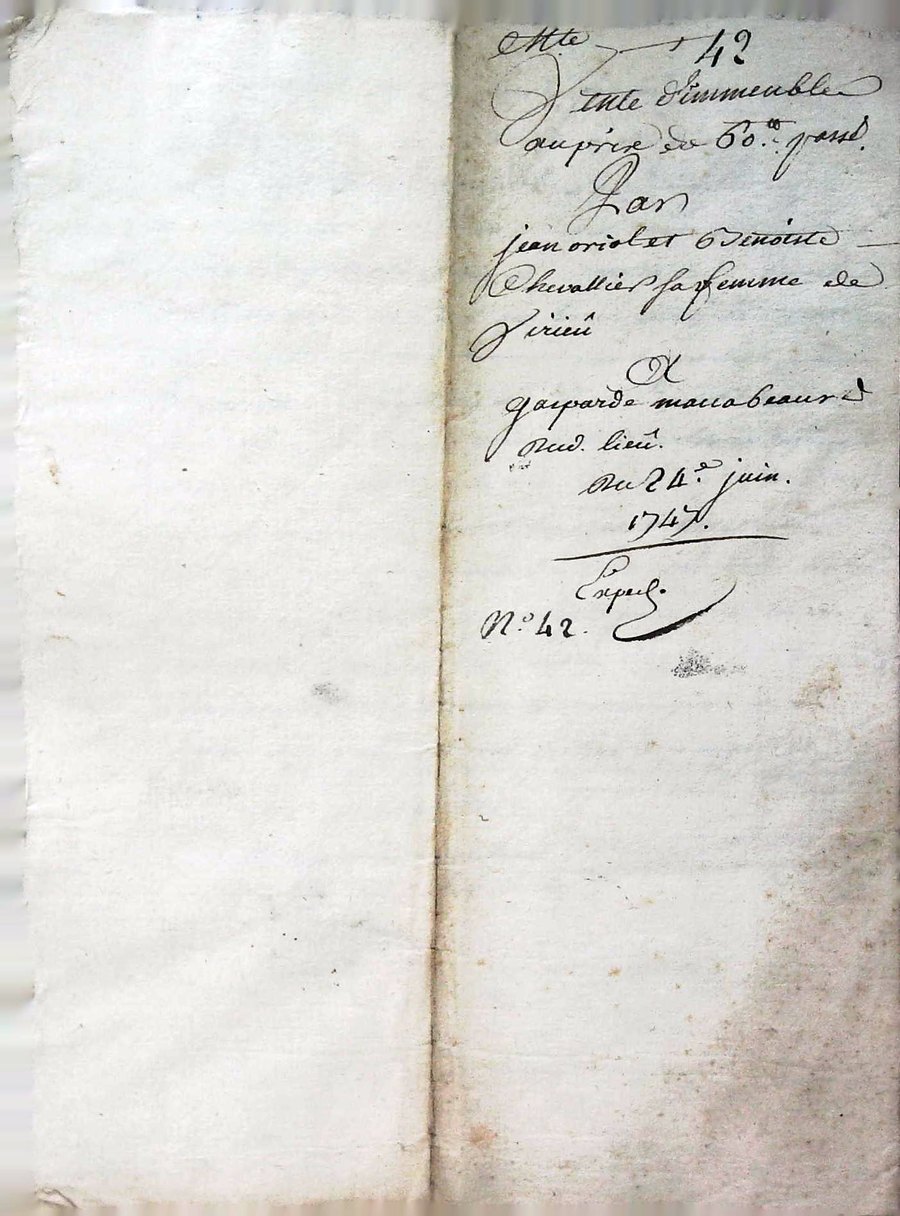 Cotte 42
Vente d'immeuble
au prix de 60.ᵗᵗ passé.
Par
jean oriol et Benoiste
Chevallier sa femme de
Virieû
A
gasparde
Dud. lieû.
Du 24.e juin.
1747.
Exped.
N.o 42.